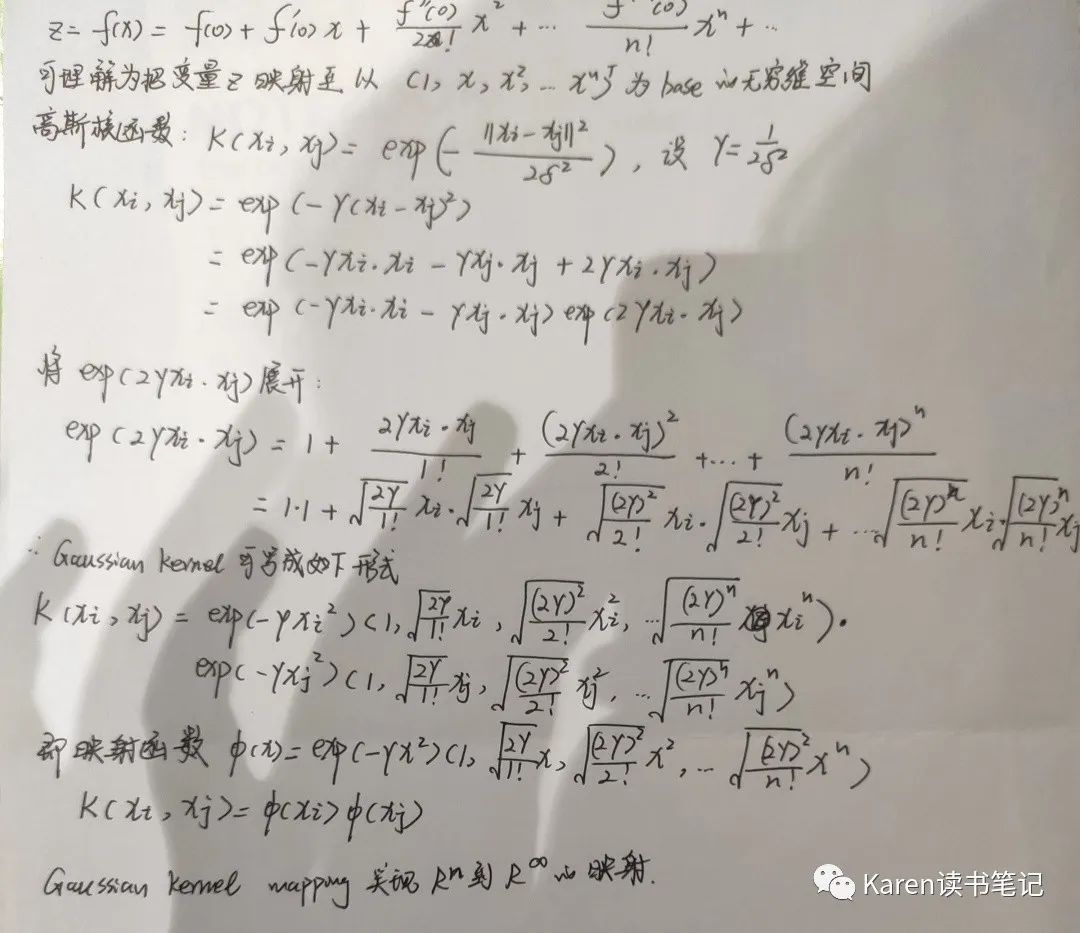 z = f(x) = f(0) + f'(0) x + f''(0)/2! x² + ... f (0)/n! xⁿ + ...
可理解为把变量 z 映射至以 (1, x, x², ... xⁿ)ᵀ 为 base 的无穷维空间
高斯核函数: K(xi, xj) = exp(- ||xi - xj||²/2δ²), 设 γ = 1/2δ²
K(xi, xj) = exp(-γ(xi - xj)²)
= exp(-γxi·xi - γxj·xj + 2γxi·xj)
= exp(-γxi·xi - γxj·xj) exp(2γxi·xj)
将 exp(2γxi·xj) 展开:
exp(2γxi·xj) = 1 + 2γxi·xj/1! + (2γxi·xj)²/2! + ... + (2γxi·xj)ⁿ/n!
= 1·1 + √(2γ/1!) xi·√(2γ/1!) xj + √((2γ)²/2!) xi·√((2γ)²/2!) xj + ... √((2γ)ⁿ/n!) xi·√((2γ)ⁿ/n!) xj
∴ Gaussian kernel 可写成如下形式
K(xi, xj) = exp(-γxi²)(1, √(2γ/1!) xi, √((2γ)²/2!) xi², ... √((2γ)ⁿ/n!) xiⁿ)·
exp(-γxj²)(1, √(2γ/1!) xj, √((2γ)²/2!) xj², ... √((2γ)ⁿ/n!) xjⁿ)
即映射函数 φ(x) = exp(-γx²)(1, √(2γ/1!) x, √((2γ)²/2!) x², ... √((2γ)²/n!) xⁿ)
K(xi, xj) = φ(xi) φ(xj)
Gaussian kernel mapping 实现 Rⁿ 到 R^∞ 的映射.
Karen读书笔记